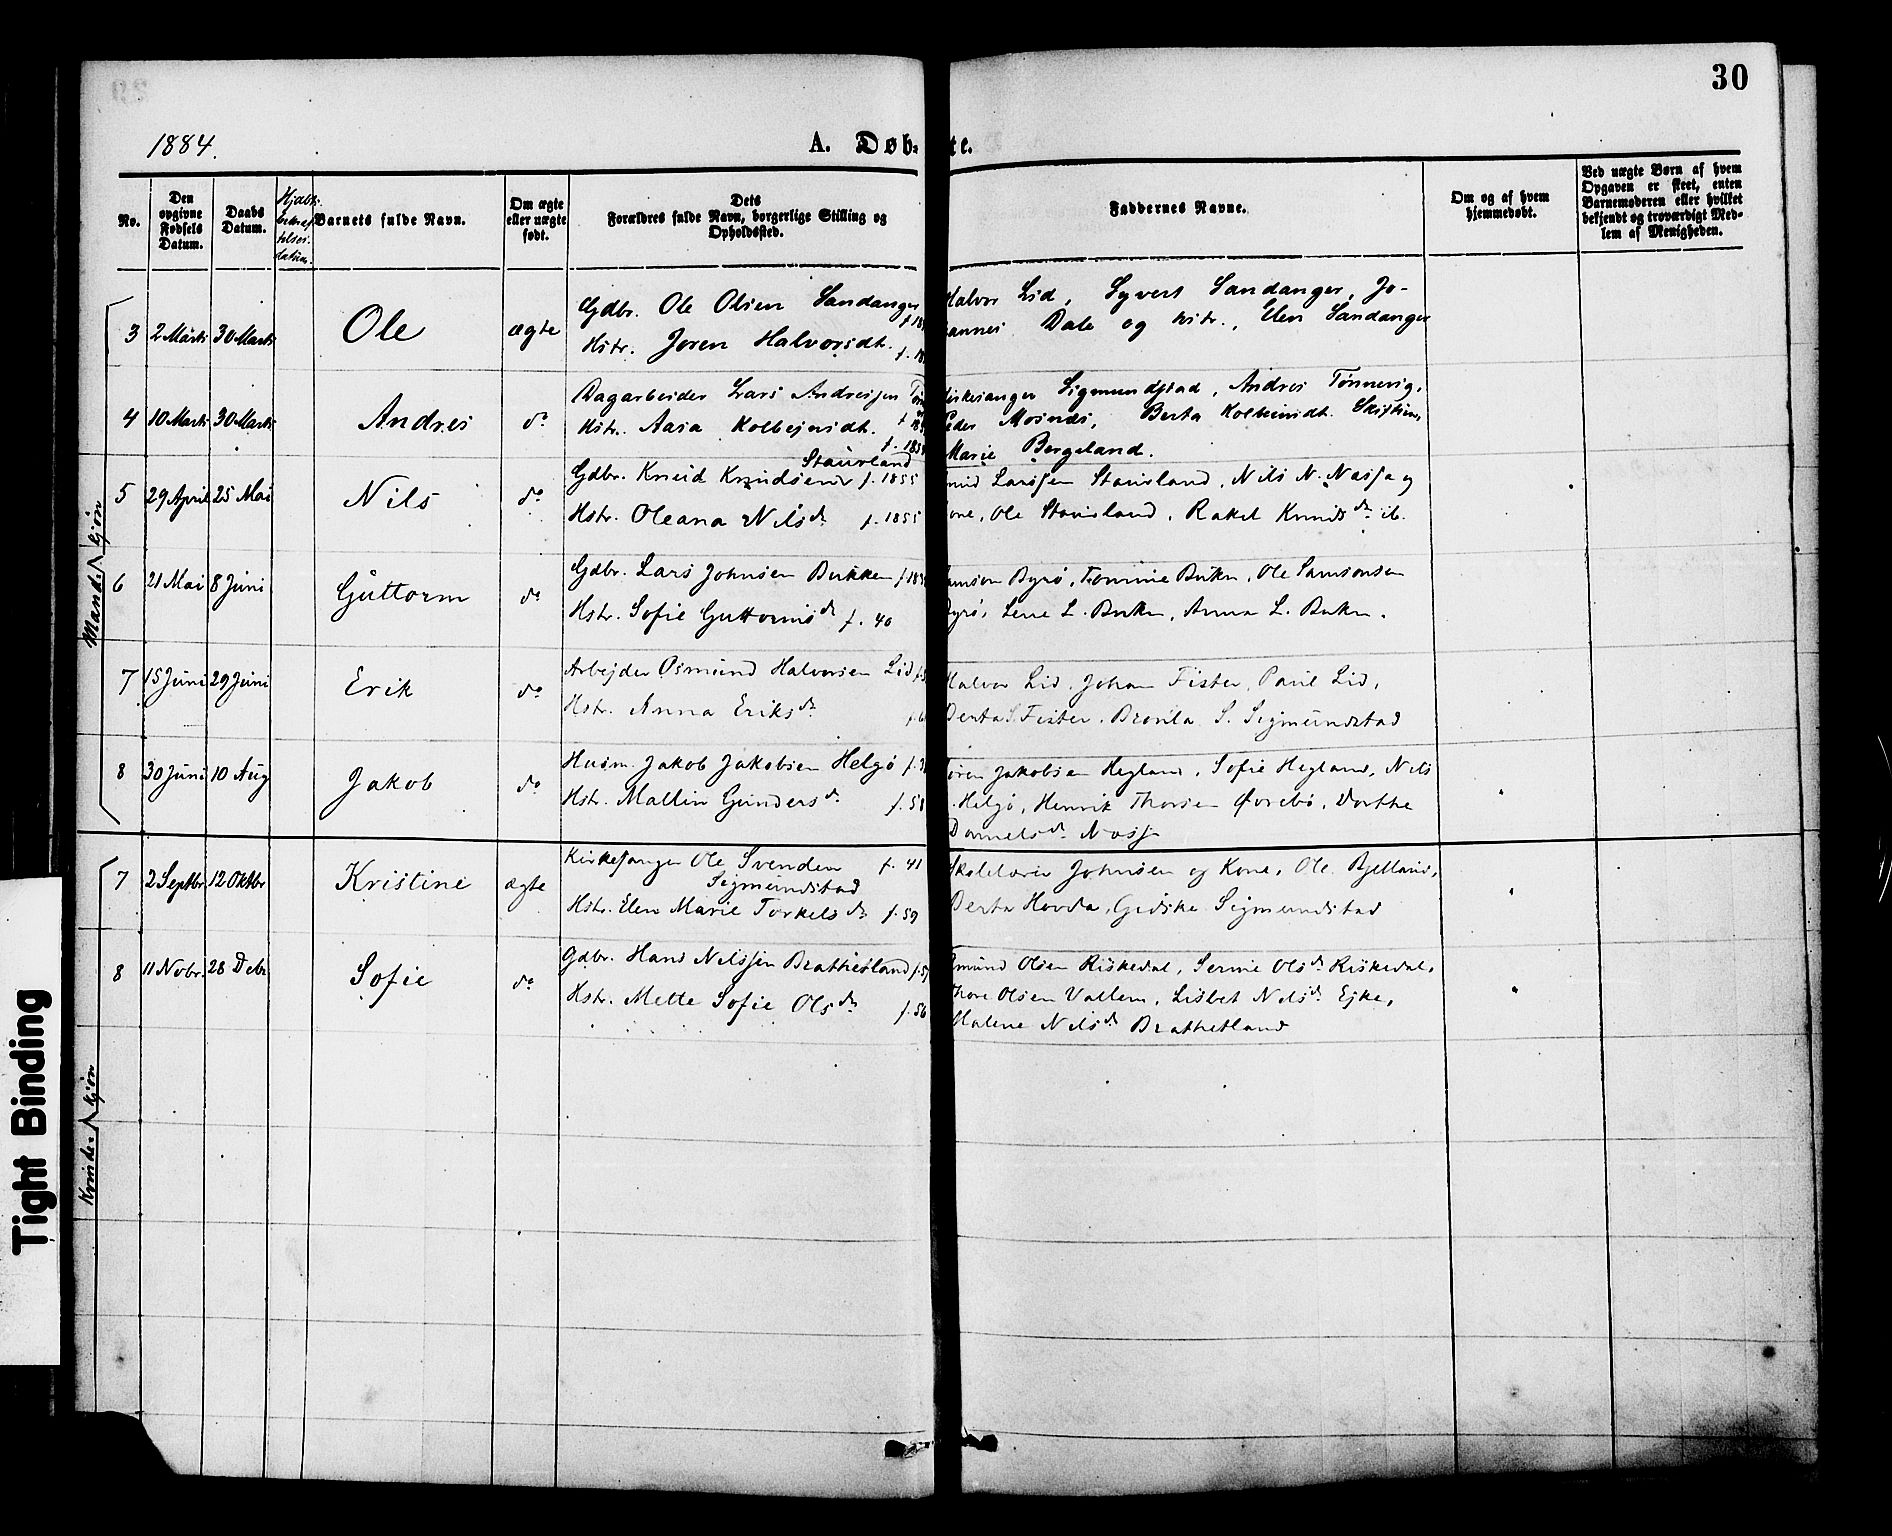 30
1884.
A. Døb- te.
No.
Den opgivne Fødsels Datum.
Daabs Datum.
Barnets fulde Navn.
Om ægte eller uægte født.
Dets Forældres fulde Navn, borgerlige Stilling og Opholdssted.
Faddernes Navne.
Om og af hvem hjemmedøbt.
Ved uægte Børn af hvem Opgaven er skeet, enten Barnemoderen eller hvilket bekjendt og troværdigt Medlem af Menigheden.
Mandkjøn
3 2 Marts 30 Marts Ole ægte
Gdbr. Ole Olsen Sandanger
Hstr. Joren Halvorsdt.
Halvor Lid, Syvert Sandanger, Jo-
hannes Dale og Hstr., Elen Sandanger
4 10 Marts 30 Marts Andres do
Dagarbeider Lars Andreissen
Hstr. Aasa Kolbejnsdt.
Kirkesanger Sigmundstad, Andres Tønnevig,
Peder Mosnes, Berta Kolbeinsdt.
Marie Bergeland.
5 29 April 25 Mai Nils do
Staurland
Gdbr. Knud Knudsen f. 1855
Hstr. Oleana Nilsdr. f. 1855
Larssen Staurland, Nils N. Nassa og
Kone, Ole Staurland, Rakel Knudsdr. ib.
6 21 Mai 8 Juni Guttorm do
Gdbr. Lars Johnsen Bukken
Hstr. Sofie Guttormsdr. f. 40
Samson Byrø, Tommine Bukn, Ole Samsonsen
Byrø, Lene L. Bukn, Anna L. Bukn.
7 15 Juni 29 Juni Erik do
Arbejder Osmund Halvorsen Lid
Hstr. Anna Eriksdr.
Halvor Lid, Johan Fister, Paul Lid,
Berta S. Fister, S. Sigmundstad
8 30 Juni 10 Aug Jakob do
Husm. Jakob Jakobsen Helgø
Hstr. Mallin Gundersdr. f. 58
Søren Jakobsen Hegland, Sofie Hegland, Nils
Helgø, Henrik Thorsen Øvrebø, Dorthe
Danielsdr. Nassa
Kvindekjøn
7 2 Septbr. 12 Oktbr Kristine ægte
Kirkesanger Ole Svendsen f. 41
Sigmundstad
Hstr. Elen Marie Torkelsdr f. 59
Skolelærer Johnsen og Kone, Ole Bjelland,
Berta Hovda, Gidske Sigmundstad
8 11 Nobr. 28 Debr Sofie do
Gdbr. Hans Nilssen Brattetland
Hstr. Mette Sofie Olsdr f. 56
Osmund Olsen Riskedal, Serine Olsdr Riskedal,
Thore Olsen Vallem, Lisbet Nilsdr Ejke,
Malene Nilsdr Brattetland
Tight Binding